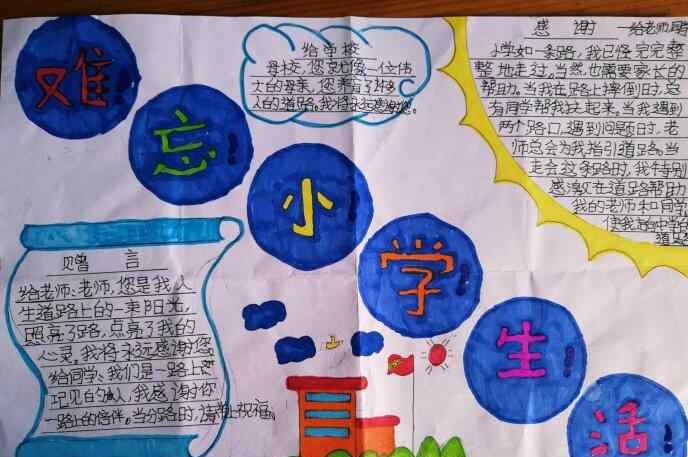 难
忘
小
学
生
活
给学校
母校，您就像一位伟
大的母亲，您
人的道路，我将永远感谢您。
感 谢 一给老师、同学
小学如一条路，我已经完完整
整地走过，当然，也需要家长的
帮助。当我在路上摔倒时，总
有同学帮我扶起来，当我遇到
两个路口，遇到问题时，老
师总会为我指引道路。当
走会这条路时，我特别
感谢在道路帮助
我的老师和同学，
赠 言
给老师：老师，您是我人
生道路上的一束阳光，
照亮了路，点亮了我的
心灵，我将永远感谢您。
给同学：我们是一路上
我感谢你
一路上的陪伴。当分路时，请带上祝福。